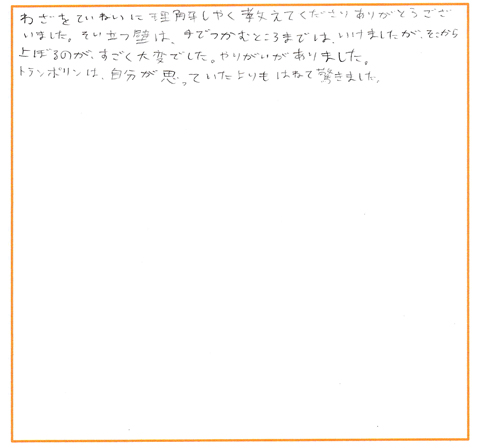 わざをていねいに理解しやく教えてくださりありがとうござ
いました。そい立つ壁は、手でつかむところまでは、いけましたが、そこから
上ぼるのが、すごく大変でした。やりがいがありました。
トランポリンは、自分が思っていたよりもはねて驚きました。